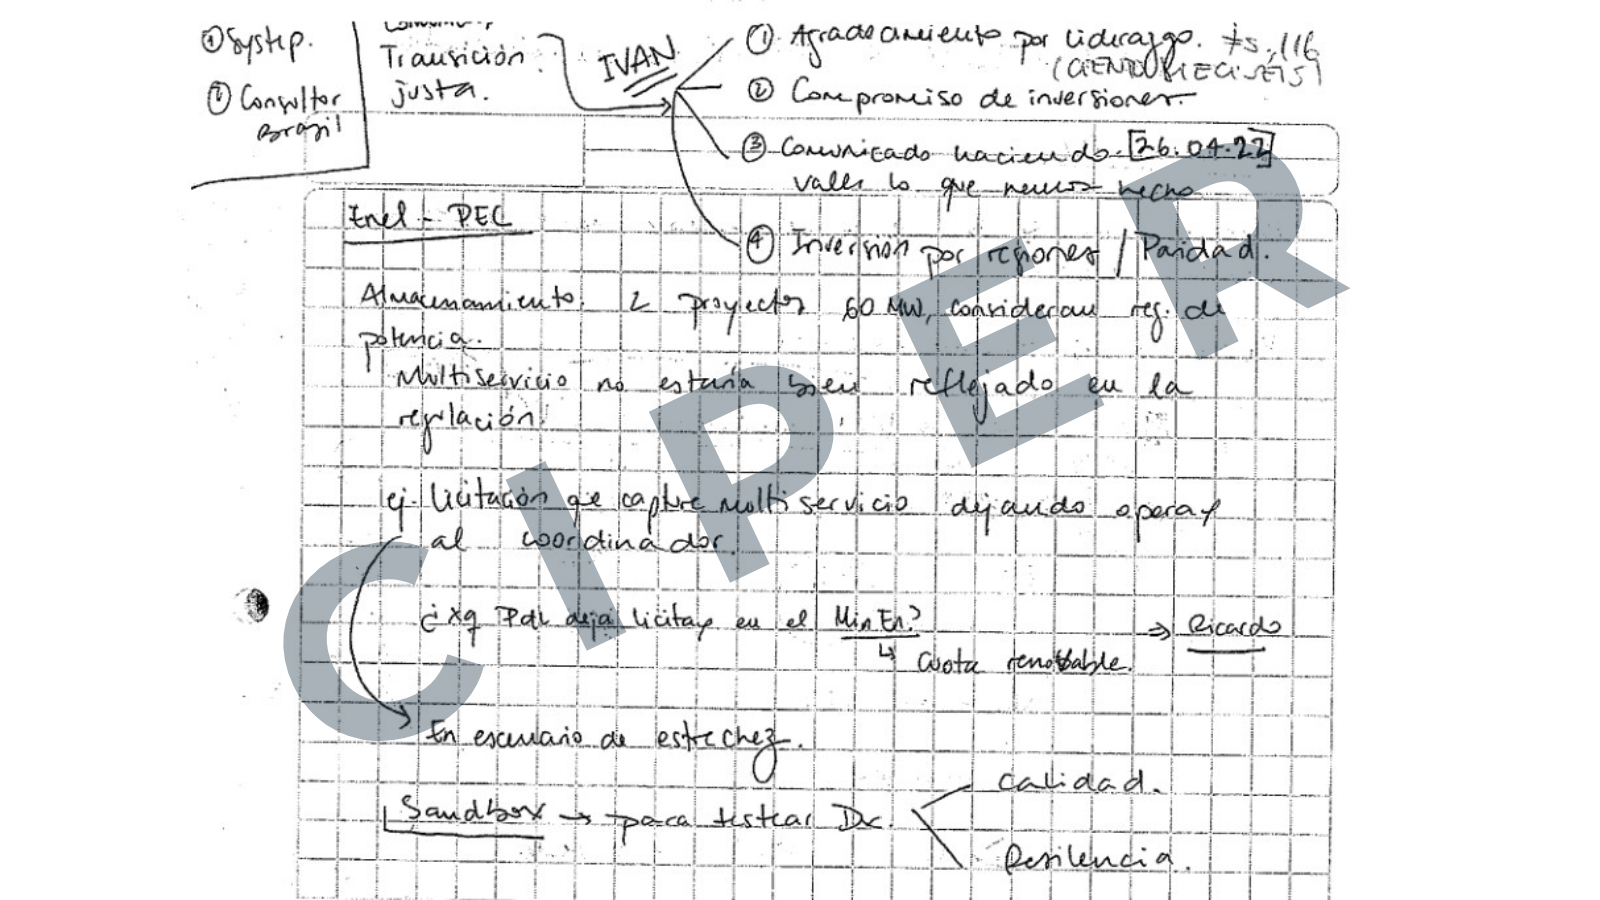 ① Systep.
② Consultor
Brazil
Transición
justa.
IVAN
① Agradecimiento por liderazgo.
Fs. 116
(CIENTO DIECISEIS)
② Compromiso de inversiones.
③ Comunicado haciendo [26.04.22]
valer lo que hemos hecho
④ Inversión por regiones / Paridad.
Enel - PEC
Almacenamiento. 2 proyectos 60 MW, consideran reg. de
potencia.
Multiservicio no estaría bien reflejado en la
regulación.
ej. licitación que capture multiservicio dejando operar
al coordinador.
¿Xq PdL deja licitar en el MinEn? → Ricardo
↳ Cuota renovable.
En escenario de estrechez.
Sandbox → para testear Dx.
Calidad.
Resilencia.
CIPER